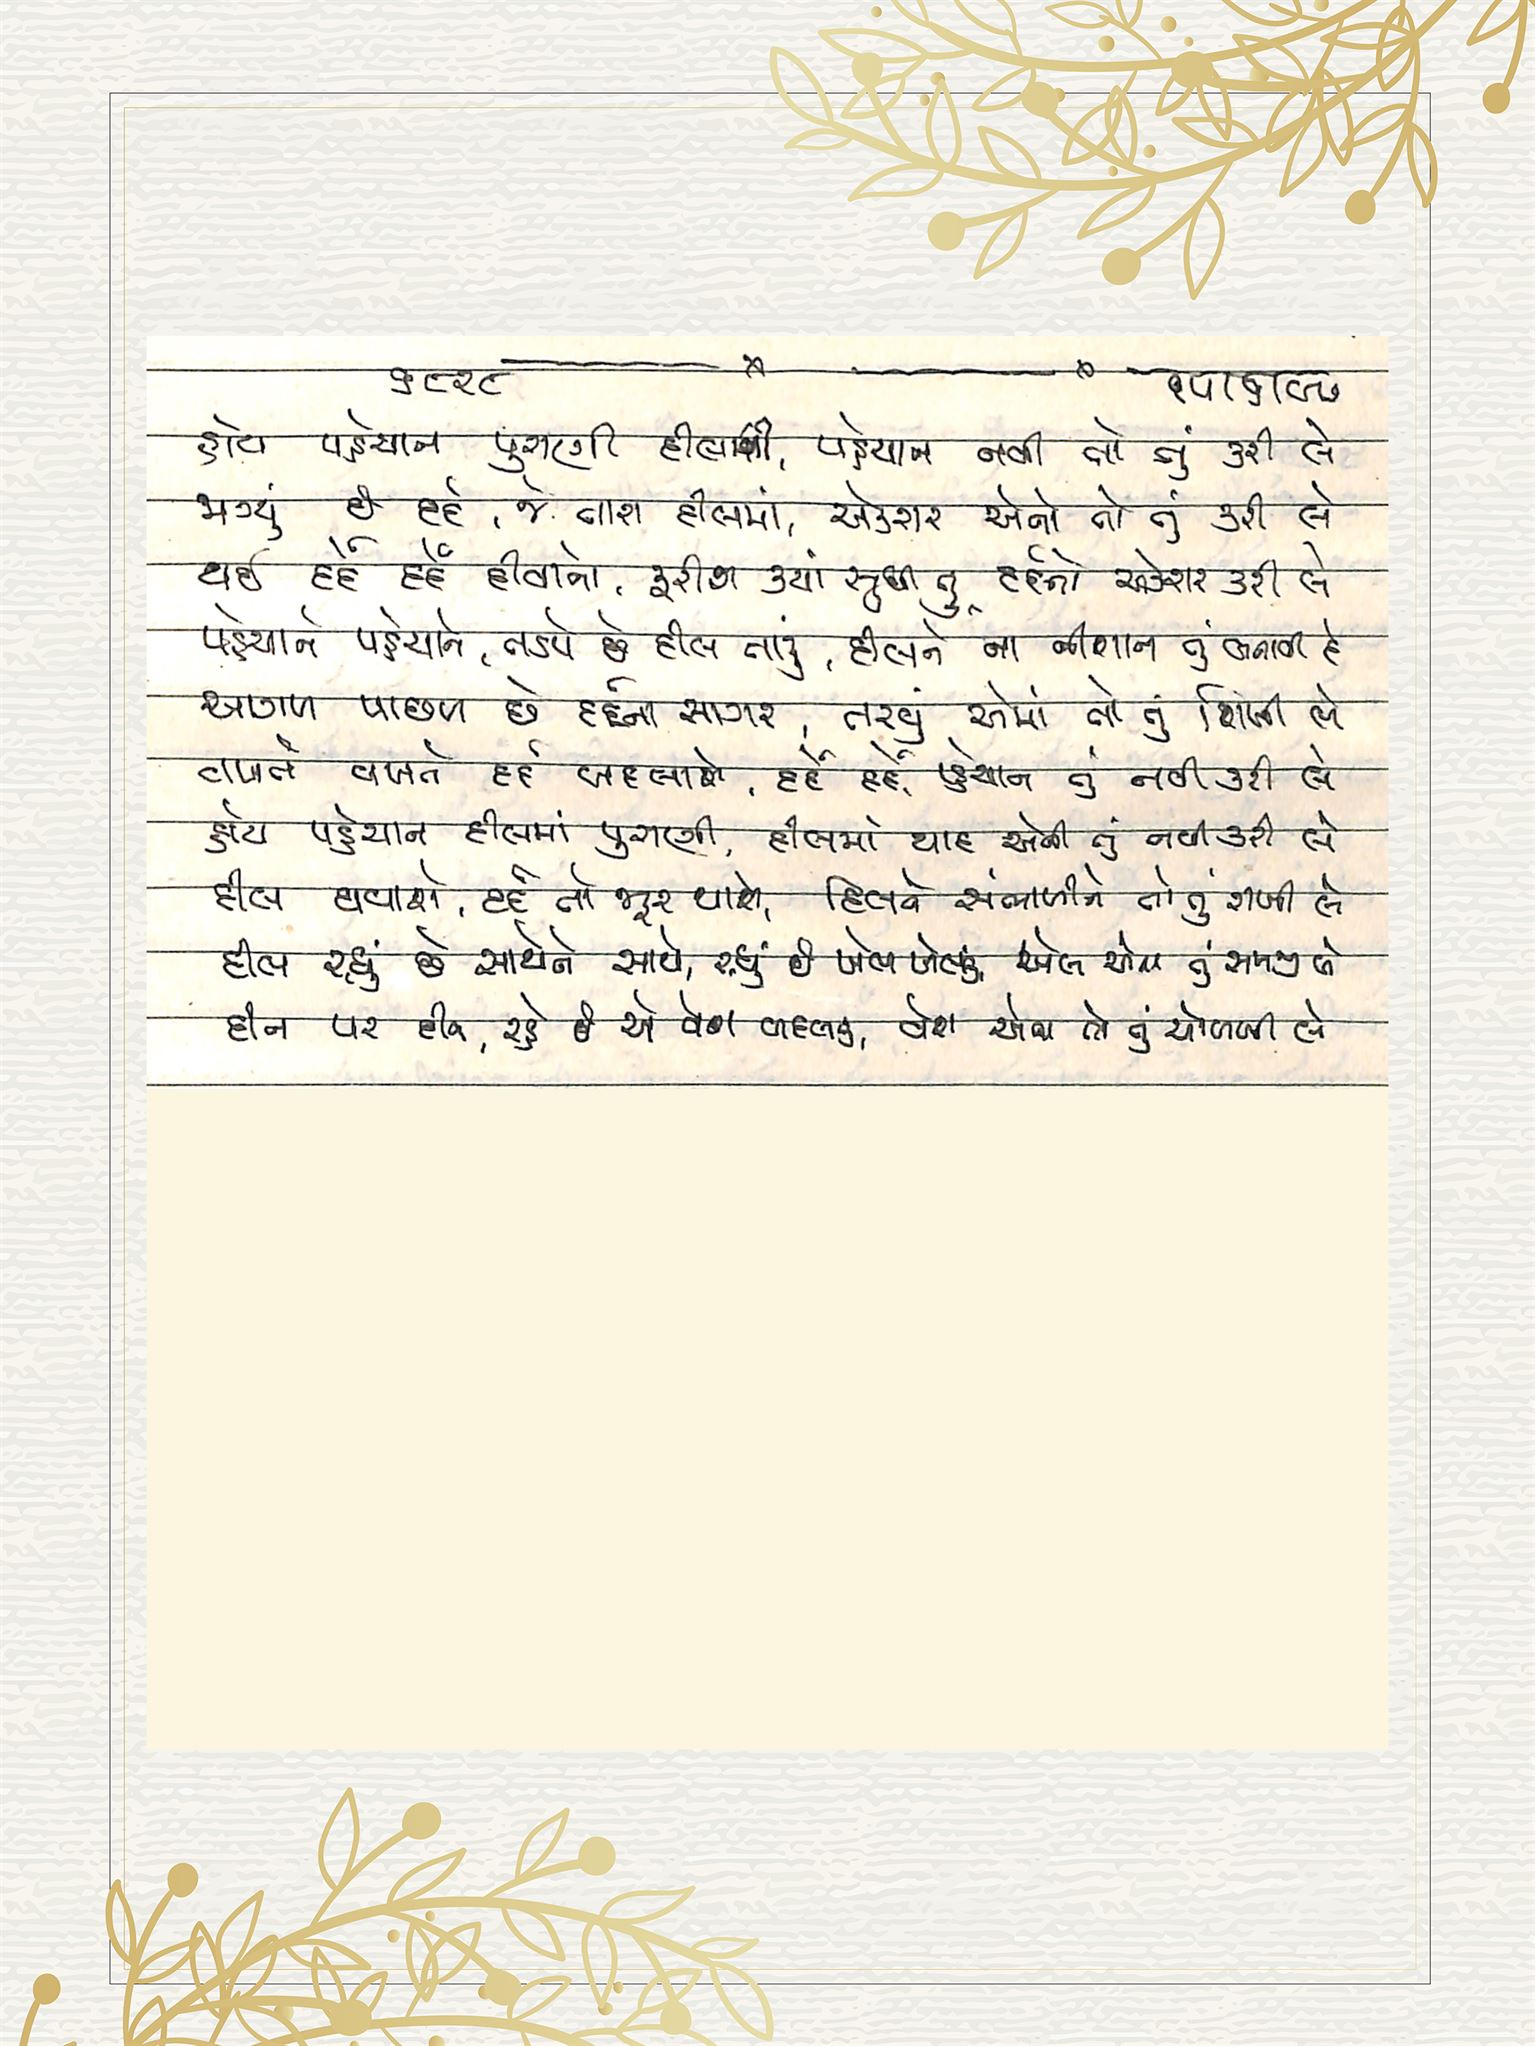 ૧૯૨૯ ૧૫।૬।૯૭
હોય પહેચાન પુરાણી દીલની, પહેચાન નવી તો તું કરી લે
ભર્યું છે દર્દ, જે તારા દીલમાં, એકરાર એનો તો તું કરી લે
થઈ દર્દે દર્દે દીવાનો, ફરીશ ક્યાં સુધી તું, દર્દનો એકરાર કરી લે
પહેચાને પહેચાને, તડપે છે દીલ તારું, દીલને ના નીશાન તું બનાવી દે
આગળ પાછળ છે દર્દના સાગર, તરવું એમાં તો તું શિખી લે
વખતે વખતે દર્દ બદલાશે, દર્દે દર્દે, પહેચાન તું નવી કરી લે
હોય પહેચાન દીલમાં પુરાણી, દીલમાં યાદ એની તું નવી કરી લે
દીલ ઘવાશે, દર્દ તો જરૂર થાશે, દિલને સંભાળીને તો તું રાખી લે
દીલ રહ્યું છે સાથેને સાથે, રહ્યું છે ખેલ ખેલતું, ખેલ એના તું સમજી લે
દીન પર દીન, રહે છે એ વેશ બદલતું, વેશ એના તો તું ઓળખી લે